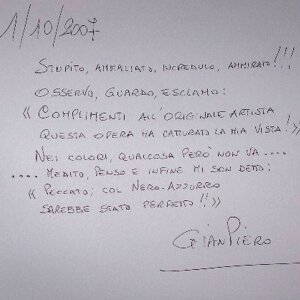 1/10/2007
STUPITO, AMMALIATO, INCREDULO, AMMIRATO!!!
OSSERVO, GUARDO, ESCLAMO:
« COMPLIMENTI ALL'ORIGINALE ARTISTA
QUESTA OPERA HA CATTURATO LA MIA VISTA!»
NEI COLORI, QUALCOSA PERÒ NON VA....
.... MEDITO, PENSO E INFINE MI SON DETTO:
« PECCATO; COL NERO-AZZURRO
SAREBBE STATO PERFETTO!!»
GIANPIERO